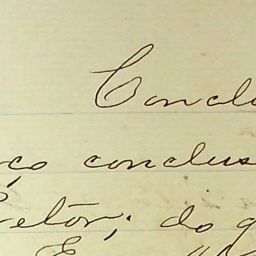 Conclu
ço conclus
retor; do q